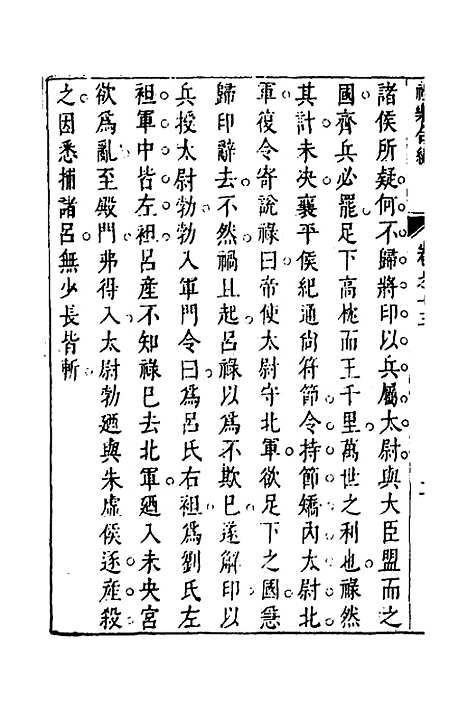 諸侯所疑何不歸將印以兵屬太尉與大臣盟而之
國齊兵必罷足下高枕而王千里萬世之利也祿然
其計未决襄平侯紀通尚符節令持節矯內太尉北
軍復令寄說祿曰帝使太尉守北軍欲足下之國急
歸印辭去不然禍且起呂祿以為不欺巳遂解印以
兵授太尉勃勃入軍門令曰爲呂氏右袒爲劉氏左
袒軍中皆左袒呂産不知祿巳去北軍廼入未央宮
欲爲亂至殿門弗得入太尉勃廼與朱虛侯逐產殺
之因悉捕諸呂無少長皆斬